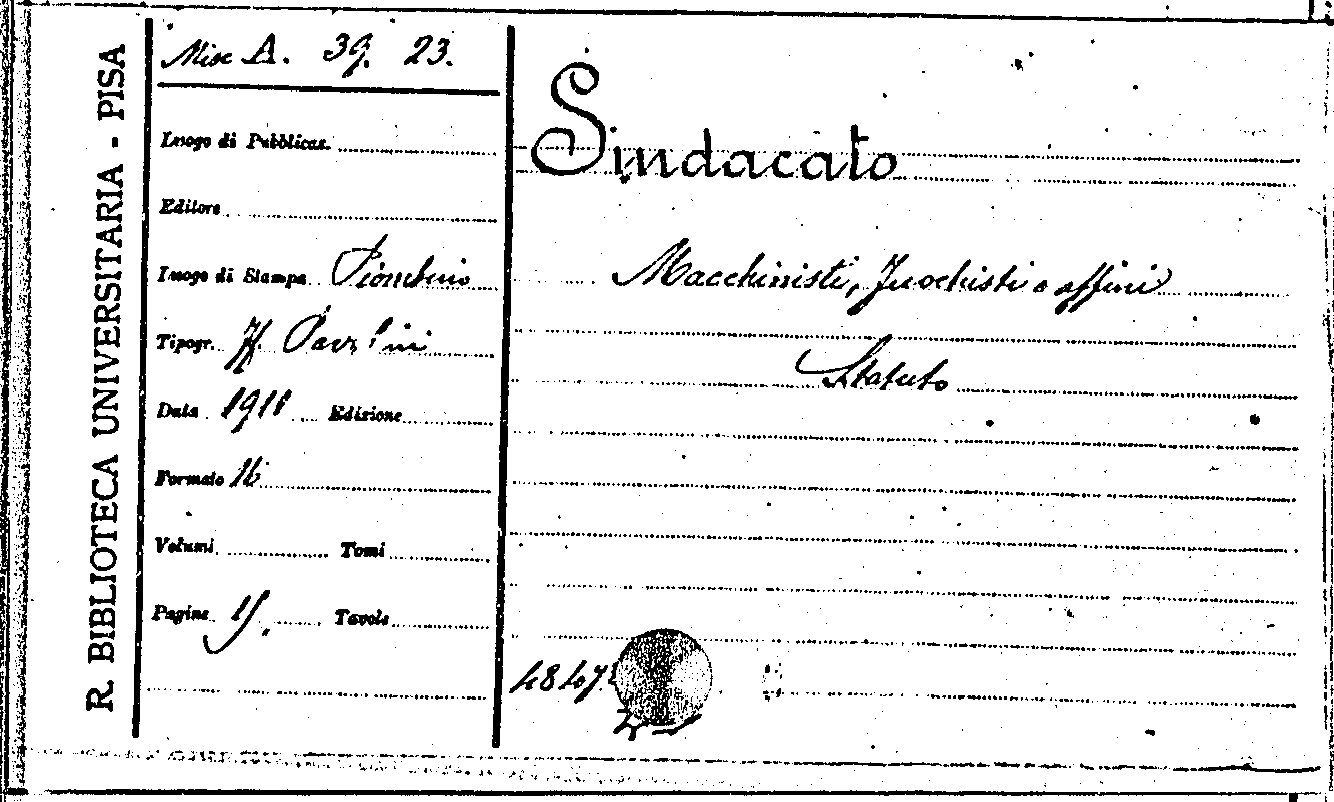 R. BIBLIOTECA UNIVERSITARIA - PISA
Misc A. 39. 23.
Luogo di Pubblicaz.
Editore
Luogo di Stampa Piombino
Tipogr.
Data 1911 Edizione
Formato 16
Volumi Tomi
Pagine 15. Tavole
Sindacato
Macchinisti, Fuochisti e affini
Statuto